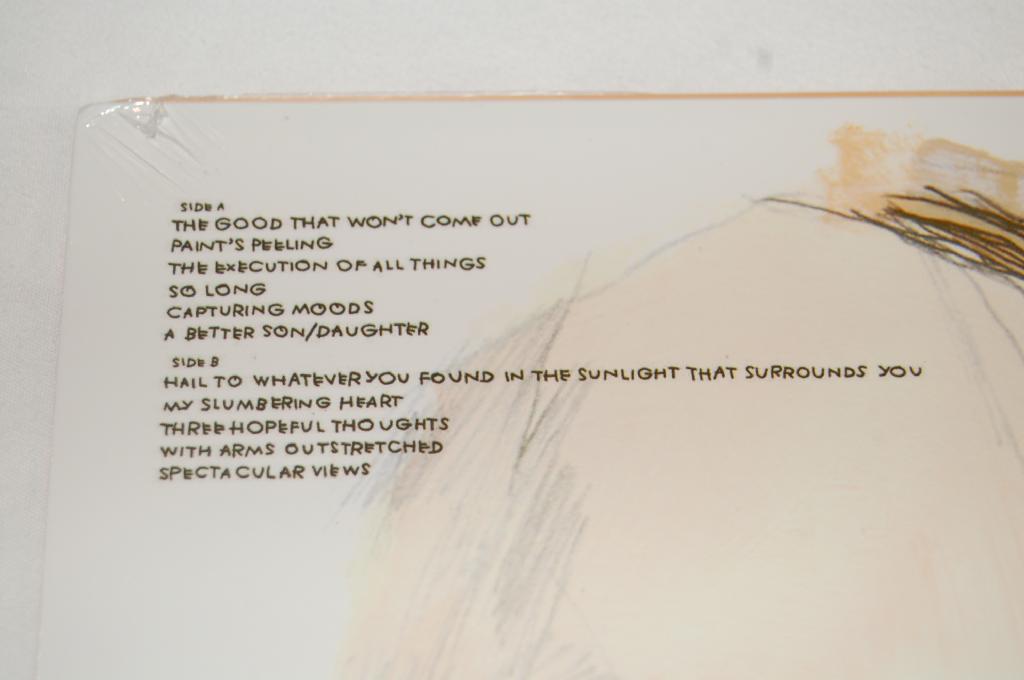 SIDE A
THE GOOD THAT WON'T COME OUT
PAINT'S PEELING
THE EXECUTION OF ALL THINGS
SO LONG
CAPTURING MOODS
A BETTER SON/DAUGHTER
SIDE B
HAIL TO WHATEVER YOU FOUND IN THE SUNLIGHT THAT SURROUNDS YOU
MY SLUMBERING HEART
THREE HOPEFUL THOUGHTS
WITH ARMS OUTSTRETCHED
SPECTACULAR VIEWS